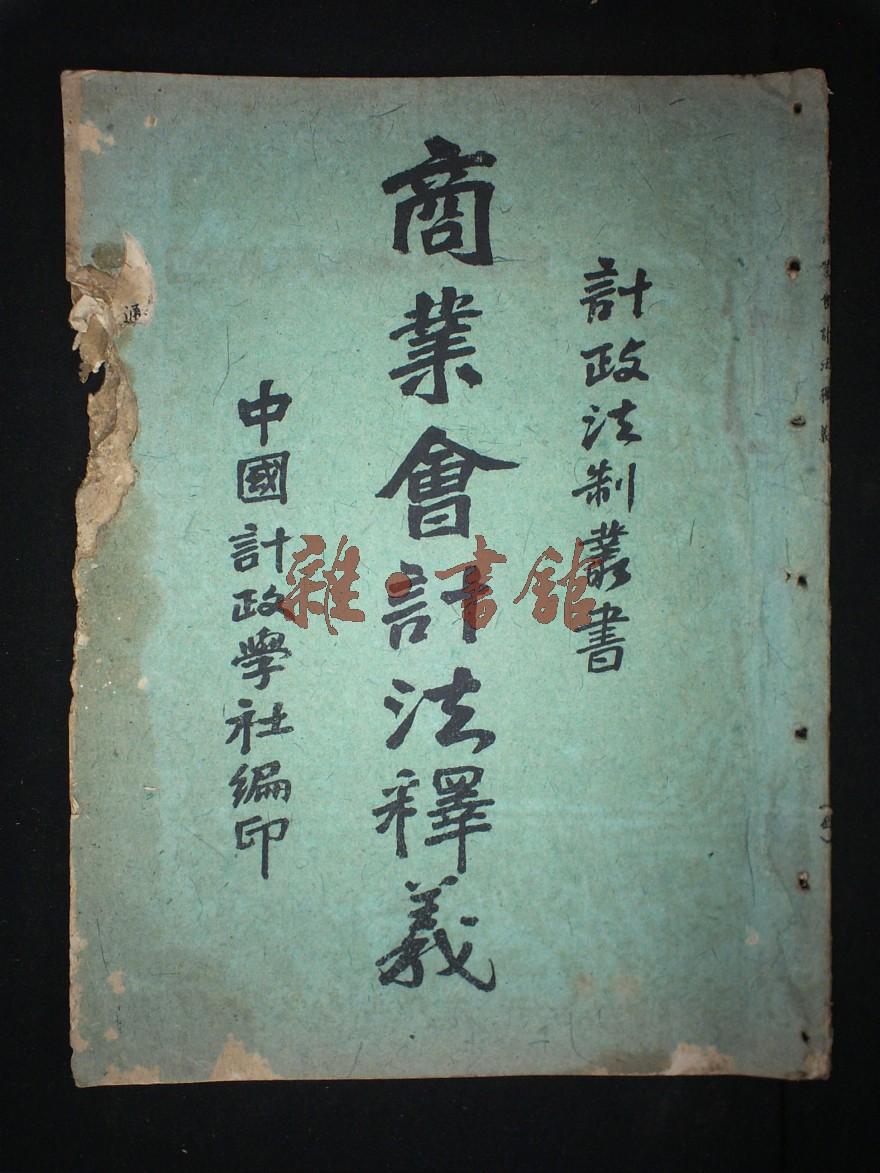 計政法制叢書
商業會計法釋義
中國計政學社編印
雜·書舘
通